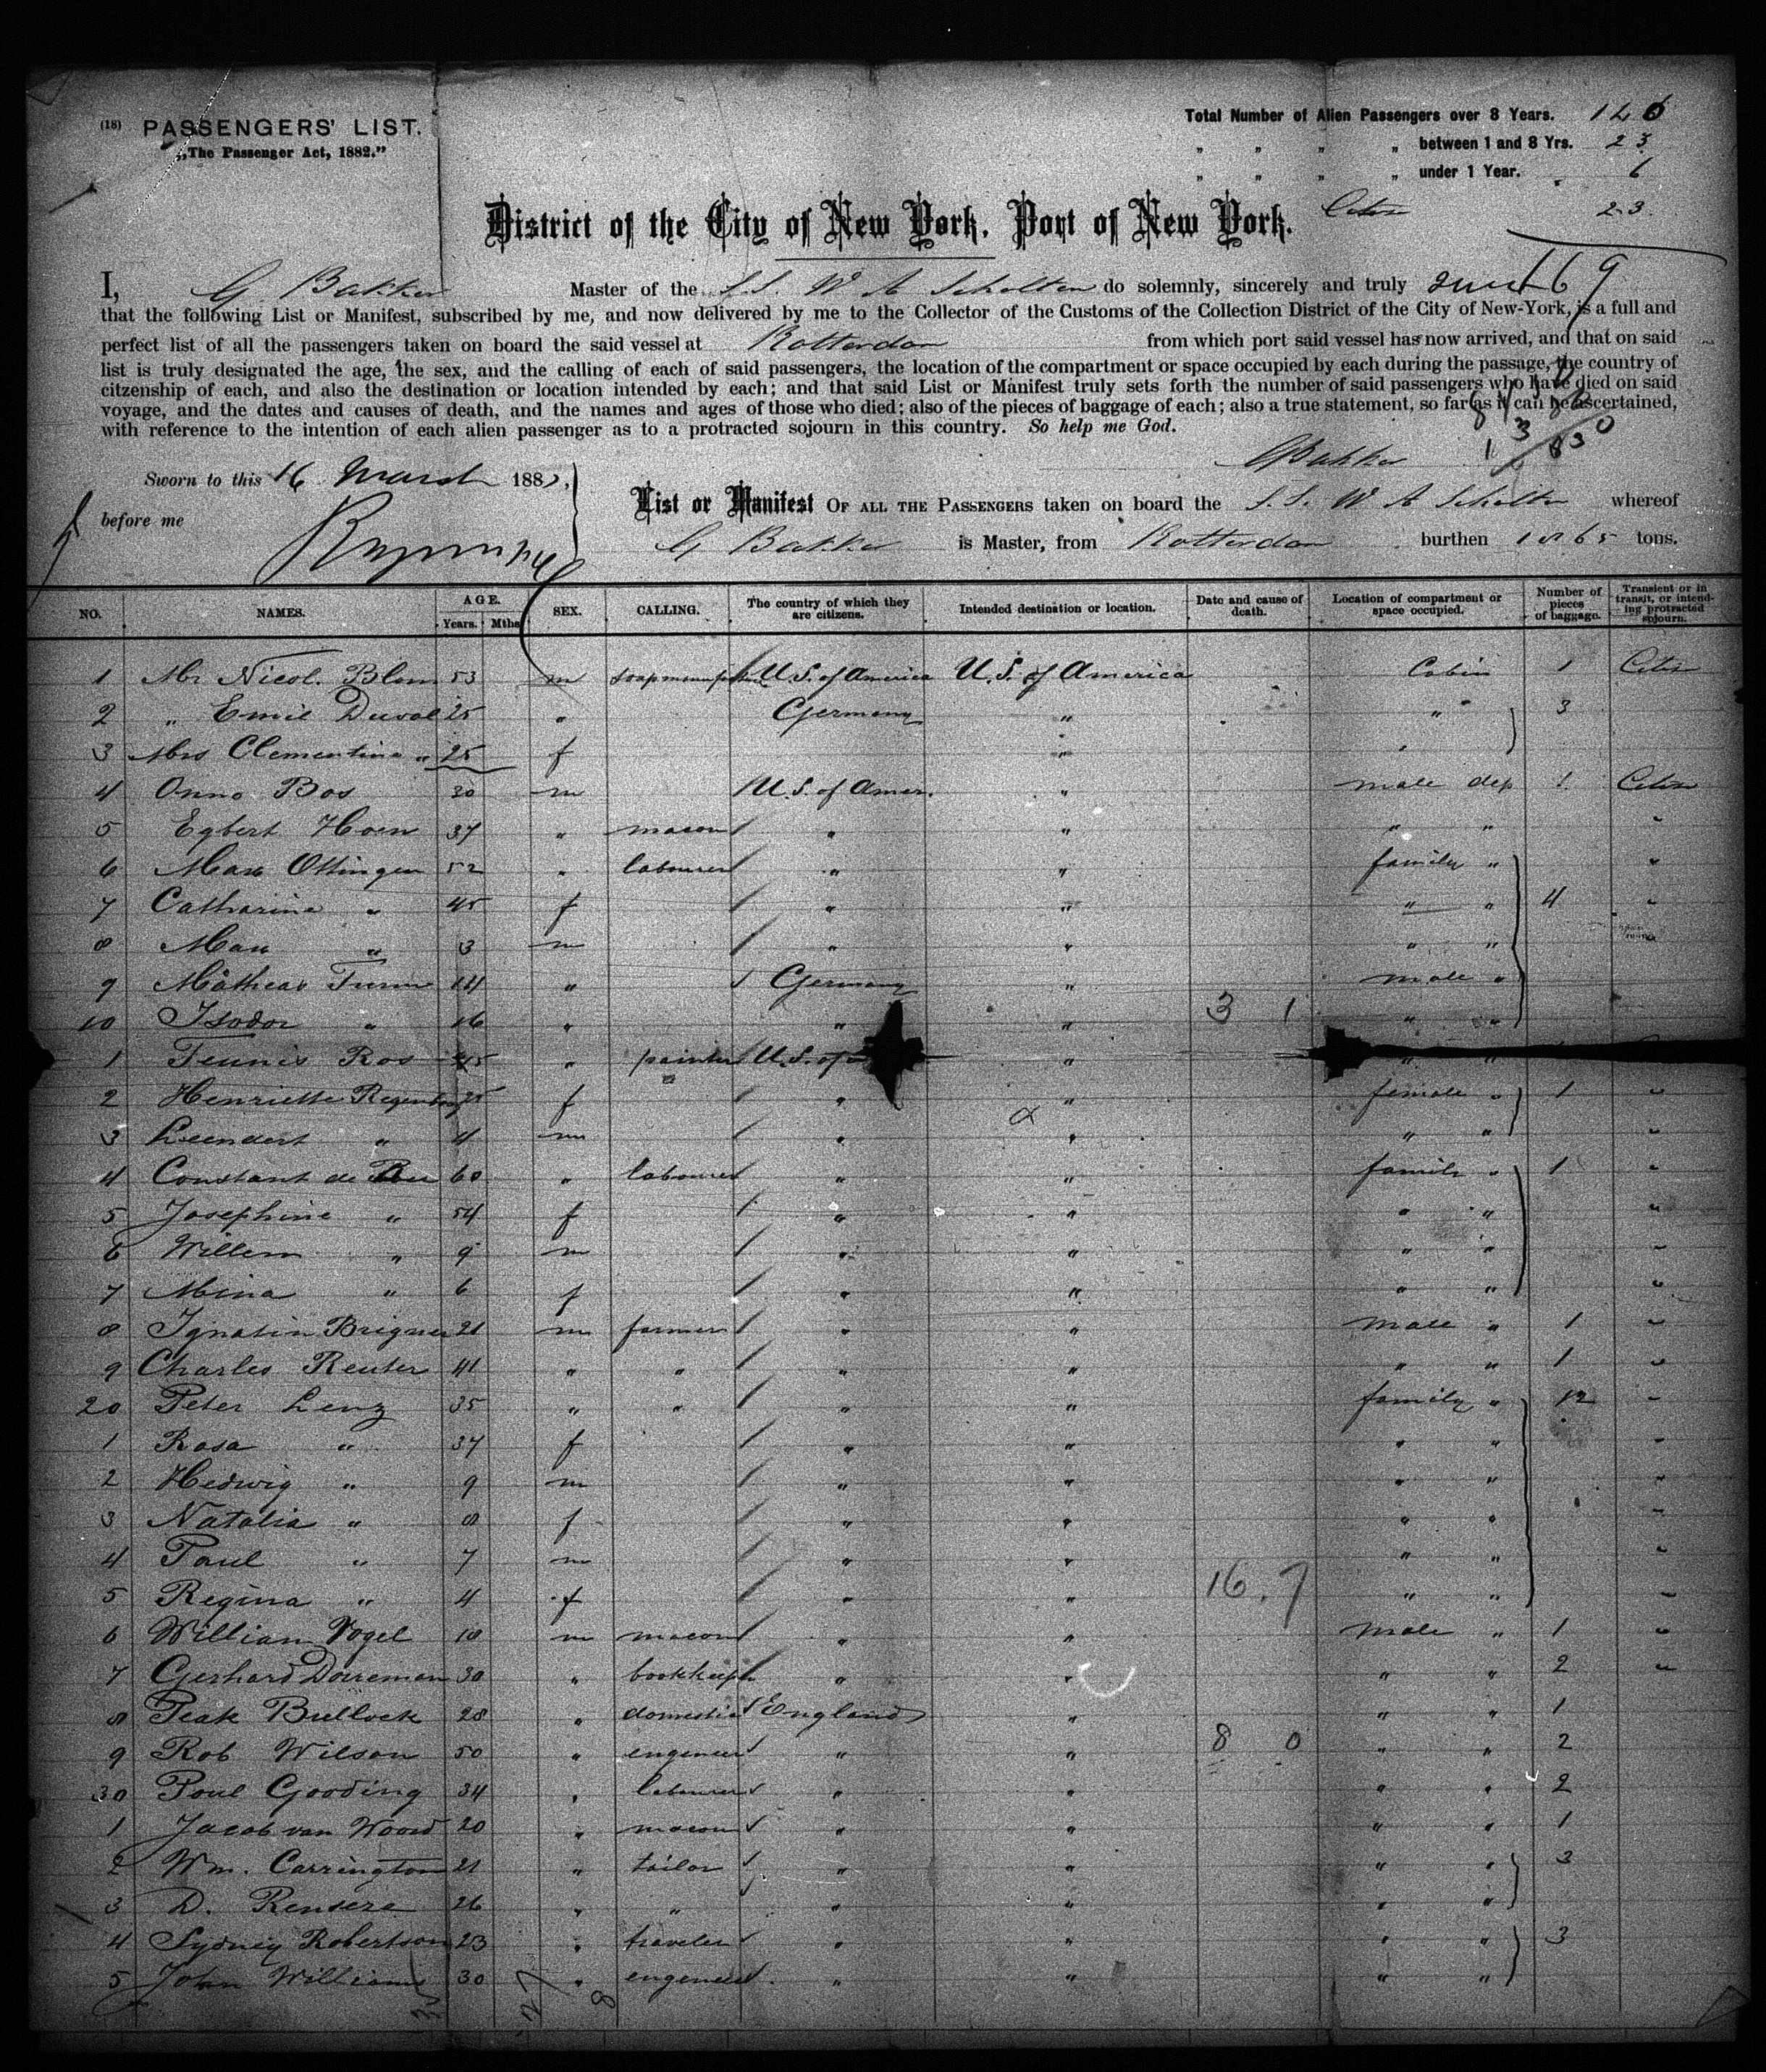 (18) PASSENGERS' LIST.
„The Passenger Act, 1882."
Total Number of Alien Passengers over 8 Years. 146
„ „ „ „ between 1 and 8 Yrs. 23
„ „ „ „ under 1 Year. 6
23
District of the City of New York, Port of New York.
I, G. Bakker Master of the S.S. W A Scholten do solemnly, sincerely and truly
that the following List or Manifest, subscribed by me, and now delivered by me to the Collector of the Customs of the Collection District of the City of New-York, is a full and
perfect list of all the passengers taken on board the said vessel at Rotterdam from which port said vessel has now arrived, and that on said
list is truly designated the age, the sex, and the calling of each of said passengers, the location of the compartment or space occupied by each during the passage, the country of
citzenship of each, and also the destination or location intended by each; and that said List or Manifest truly sets forth the number of said passengers who have died on said
voyage, and the dates and causes of death, and the names and ages of those who died; also of the pieces of baggage of each; also a true statement, so far as it can be ascertained,
with reference to the intention of each alien passenger as to a protracted sojourn in this country. So help me God.
GBakker
Sworn to this 16 March 188
before me
List or Manifest OF ALL THE PASSENGERS taken on board the S.S. W A Scholten whereof
G Bakker is Master, from Rotterdam burthen tons.
NO. NAMES. AGE. Years. Mths SEX. CALLING. The country of which they are citizens. Intended destination or location. Date and cause of death. Location of compartment or space occupied. Number of pieces of baggage. Transient or in transit, or intending protracted sojourn.
1 Mr Nicol. Blom 53 m U.S. of America U.S. of America Cabin 1
2 „ Emil Duval 25 „ Germany „ „ 3
3 Mrs Clementina „ 25 f „ „
4 Onno Bos 30 m U.S. of Amer. „ male dep 1
5 Egbert Hoen 37 „ mason „ „ „ „ „
6 Max Ottingen 52 „ labourer „ „ family „ „
7 Catharina „ 45 f „ „ „ „ 4 „
8 Max „ 3 m „ „ „ „
9 Matheas Turm 14 „ Germany „ male „
10 Isodor „ 16 „ „ „ 3 1 „ „
1 Teunis Ros 45 „ painter U.S. of „ „ „
2 Henriette 25 f „ „ female „ 1 „
3 Leendert „ 4 m „ „ „ „ „
4 Constant de 60 „ labourer „ „ family „ 1 „
5 Josephine „ 54 f „ „ „ „ „
6 Willem „ 9 m „ „ „ „ „
7 Mina „ 6 f „ „ „ „ „
8 Ignatin Brigner 21 m farmer „ „ male „ 1 „
9 Charles Reuter 41 „ „ „ „ „ „ 1 „
20 Peter Lenz 35 „ „ „ „ family „ 12 „
1 Rosa „ 37 f „ „ „ „ „
2 Hedwig „ 9 m „ „ „ „ „
3 Natalia „ 8 f „ „ „ „ „
4 Paul „ 7 m „ „ „ „ „
5 Regina „ 4 f „ „ 16.7 „ „ „
6 William Vogel 18 m mason „ „ male „ 1 „
7 Gerhard Doureman 30 „ bookkeep „ „ „ „ 2 „
8 Peak Bullock 28 „ domestic England „ „ „ 1
9 Rob Wilson 50 „ engeneer „ „ 8 0 „ „ 2
30 Poul Gooding 34 „ labourer „ „ „ „ 2
1 Jacob van Woord 20 „ mason „ „ „ „ 1
2 Wm. Carrington 21 „ tailor „ „ „ „ 3
3 D. Rensere 26 „ „ „ „ „ „
4 Sydney Robertson 23 „ traveler „ „ „ „ 3
5 John Williams 30 „ engeneer „ „ „ „